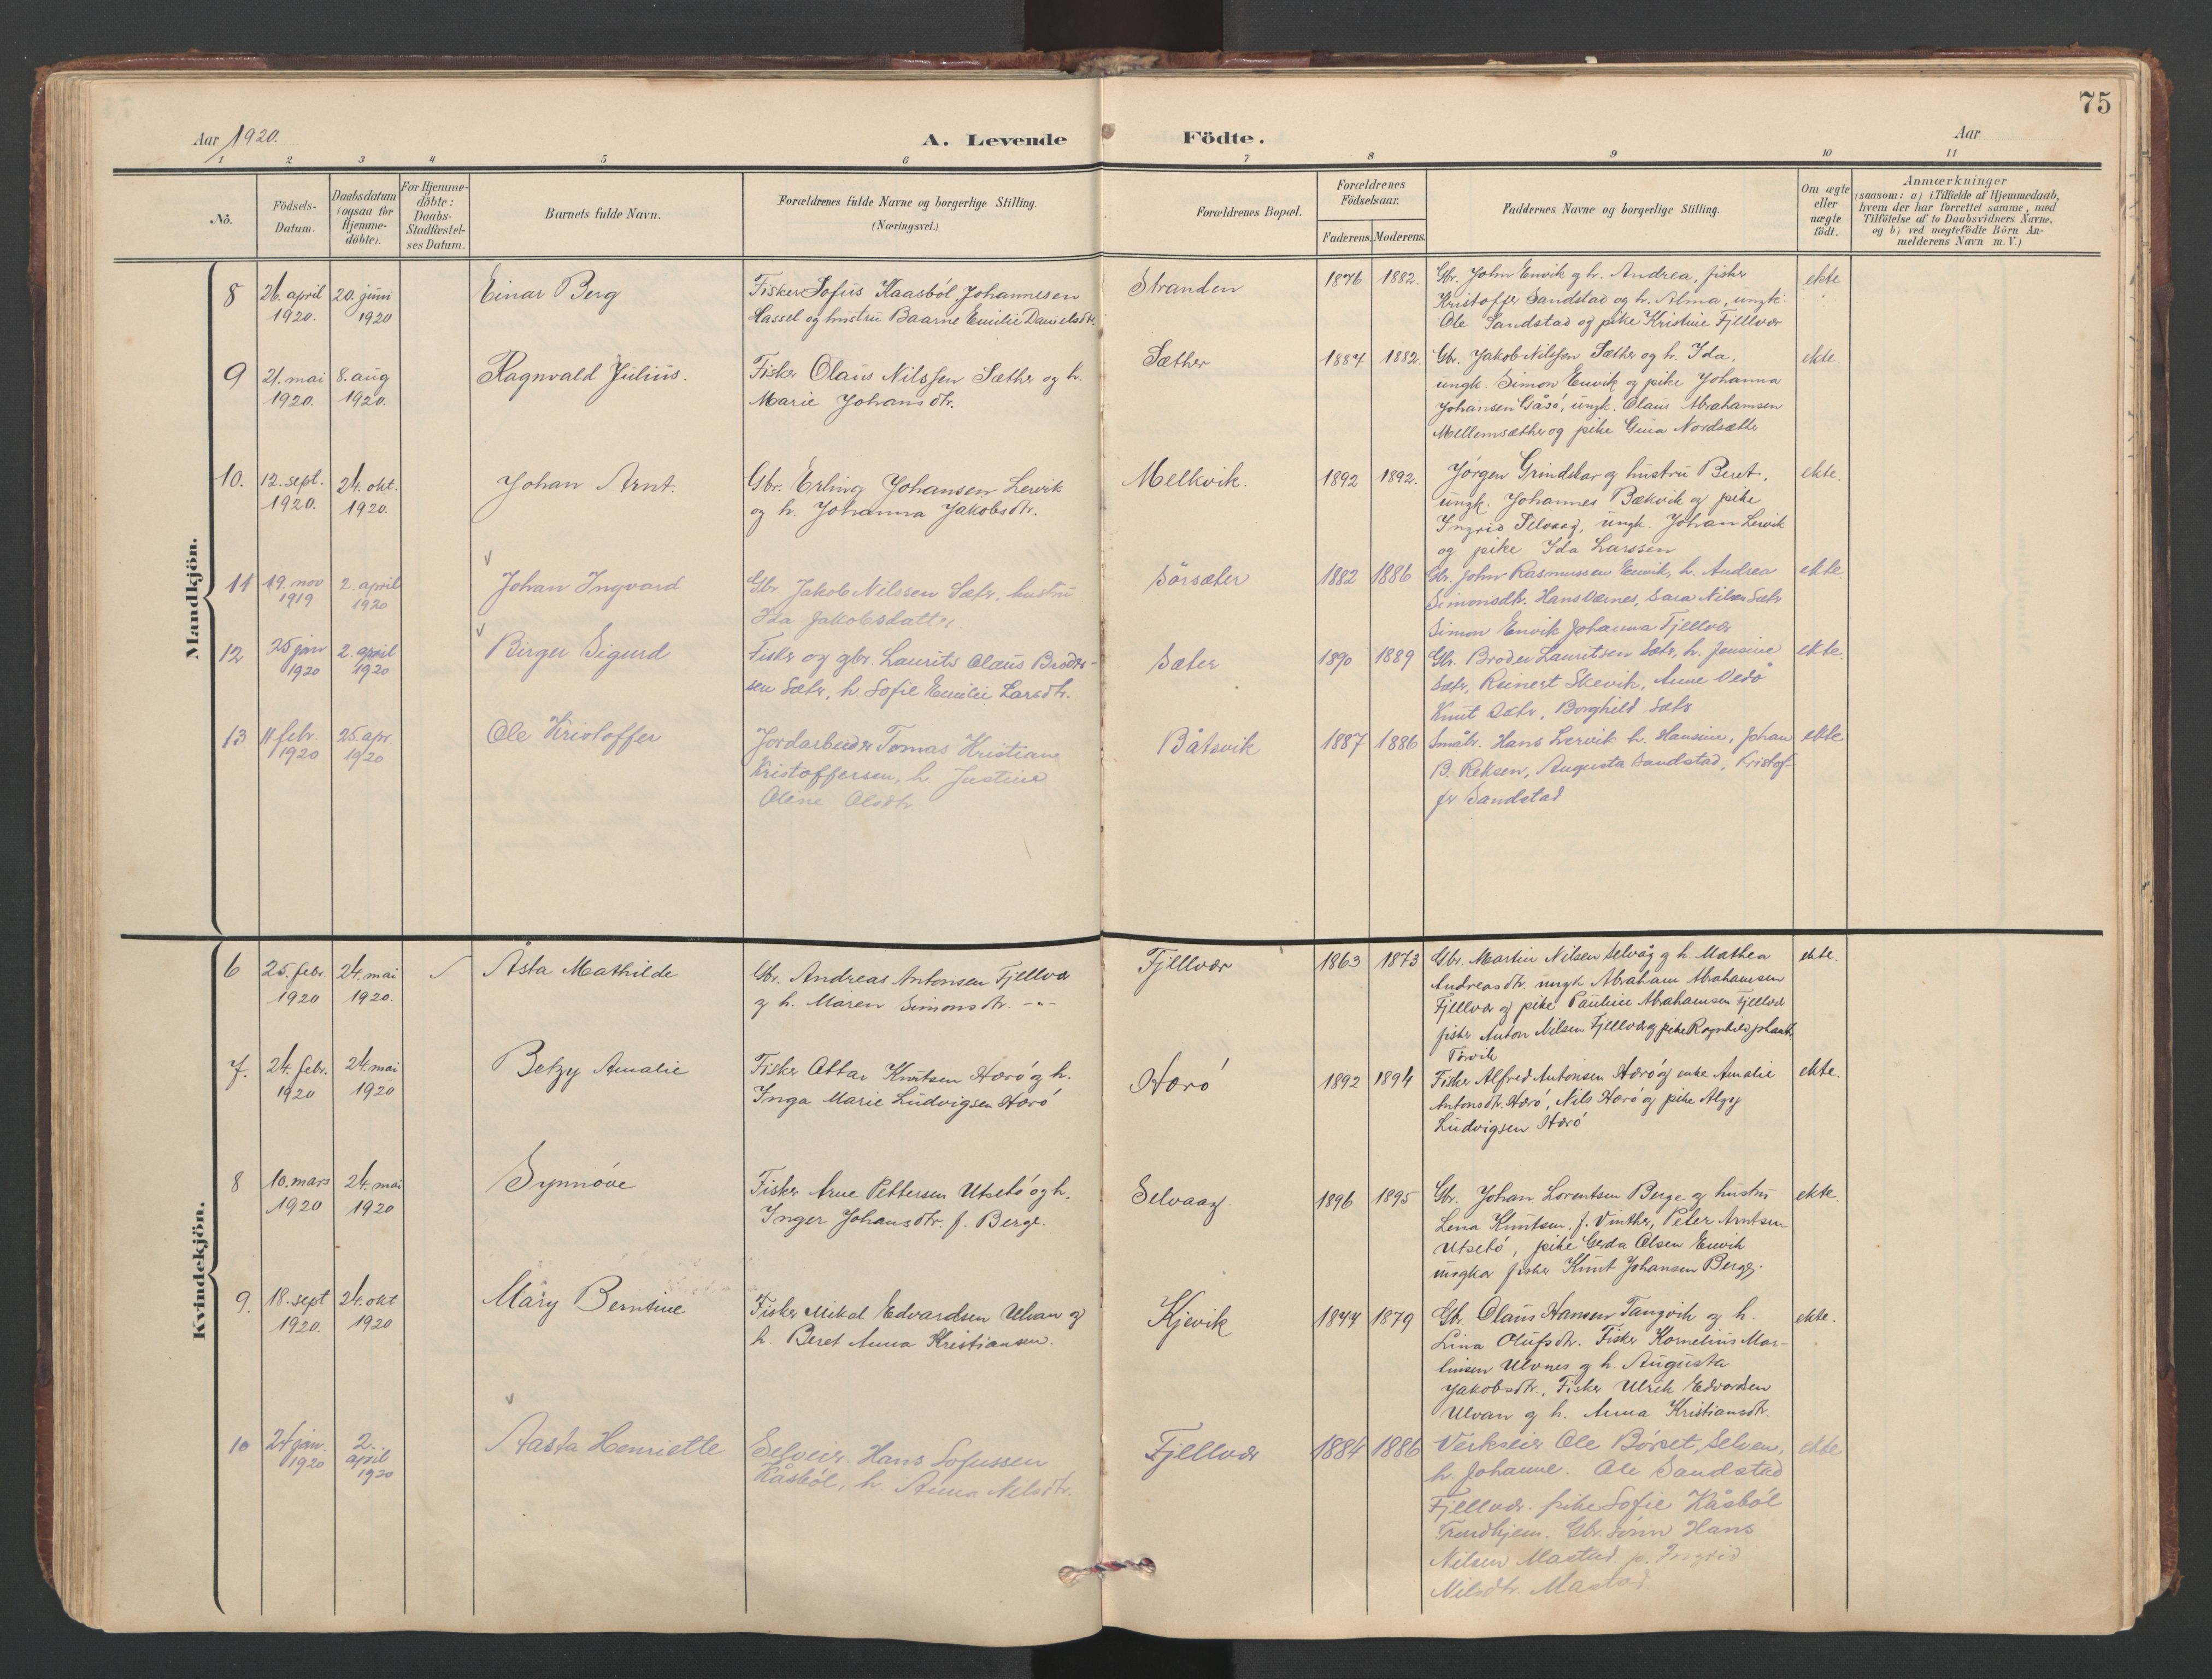 75
Aar 1920.
A. Levende Födte.
Aar
1 2 3 4 5 6 7 8 9 10 11
No.
Födsels-
Datum.
Daabsdatum
(ogsaa for
Hjemme-
döbte).
For Hjemme-
döbte:
Daabs-
Stadfæstel-
ses Datum.
Barnets fulde Navn.
Forældrenes fulde Navne og borgerlige Stilling.
(Næringsvei.)
Forældrenes Bopæl.
Forældrenes
Födselsaar.
Faderens. Moderens.
Faddernes Navne og borgerlige Stilling.
Om ægte
eller
uægte
födt.
Anmærkninger
(saasom: a) i Tilfælde af Hjemmedaab,
hvem der har forrettet samme, med
Tilföielse af to Daabsvidners Navne,
og b) ved uægtefödte Börn An-
melderens Navn m. V.)
Mandkjön.
8
26. april
1920.
20. juni
1920
Einar Berg
Fisker Sofus Kaasböl Johannesen
Hassel og hustru Baarne Emilie Danielsdtr.
Stranden
1876 1882.
Gbr. John Envik og h. Andrea, fisker
Kristoffer Sandstad og h. Alma, ungk.
Ole Sandstad og pike Kristine Fjellvær
ekte
9
21. mai
1920.
8. aug
1920.
Ragnvald Julius.
Fisker Olaus Nilssen Sæther og h.
Marie Johansdtr.
Sæther
1884 1882.
Gbr. Jakob Nilssen Sæther og h. Ida,
ungk. Simon Envik og pike Johanna
Johansen Gåsö, ungk. Olaus Abrahamsen
Mellemsæther og pike Gina Nordsæther
ekte.
10.
12. sept.
1920.
24. okt.
1920.
Johan Arnt.
Gbr. Erling Johansen Lervik
og h. Johanna Jakobsdtr.
Melkvik.
1892 1892.
Jörgen Grindskar og hustru Beret,
ungk. Johannes Bækvik og pike
Ingrid Selvaag, ungk. Johan Lervik
og pike Ida Larssen
ekte.
11
19. nov
1919
2. april
1920
Johan Ingvard
Gbr. Jakob Nilssen Sætr, hustru
Ida Jakobsdatter.
Sörsæter
1882 1886
Gbr. John Rasmussen Envik, h. Andrea
Simonsdtr. Hans Værnes, Sara Nilsen Sætr
Simon Envik Johanna Fjellvær
ekte.
12
25 jan
1920
2. april
1920
Birger Sigurd
Fisker og gbr. Laurits Olaus Broder-
sen Sætr, h. Sofie Emilie Larsdtr.
Sæter
1890 1889
Gbr. Broder Lauritsen Sætr, h. Jensine
Sætr, Reinert Skevik, Anne Vedö
Knut Sætr, Borghild Sætr
ekte.
13
11 febr.
1920
25. apr.
1920
Ole Kristoffer
Jordarbeider Tomas Kristian
Kristoffersen, h. Justine
Oline Olsdtr
Båtsvik
1887 1886
Småbr. Hans Lervik h. Hansine, Johan
B. Reksen, Augusta Sandstad, Kristof-
fer Sandstad
ekte
Kvindekjön.
6
25. febr.
1920
24. mai
1920.
Åsta Mathilde
Gbr. Andreas Antonsen Fjellvær
og h. Maren Simonsdtr. -"-
Fjellvær
1863 1873
Gbr. Martin Nilsen Selvåg og h. Mathea
Andreasdtr. ungk Abraham Abrahamsen
Fjellvær og pike Pauline Abrahamsen Fjellvær
fisker Anton Nilsen Fjellvær og pike Ragnhild
ekte.
7.
24. febr.
1920
24. mai
1920
Betzy Amalie
Fisker Ottar Knutsen Hærö og h.
Inga Marie Ludvigsen Hærö
Hærö
1892 1894
Fisker Alfred Antonsen Hærö og enke Amalie
Antonsdtr. Hærö, Nils Hærö og pike
Ludvigsen Hærö
ekte.
8
10. mars
1920
24. mai
1920
Synnöve
Fisker Arne Pettersen Utsetö og h.
Inger Johansdtr. f. Berge.
Selvaag
1896 1895
Gbr. Johan Lorentsen Berge og hustru
Lena Knutsen, f. Vinther, Peter Arntsen
Utsetö, pike Gerda Olsen Envik
ungkar fisker Knut Johansen Berge.
ekte.
9.
18. sept
1920.
24. okt
1920
Mary Berntine
Fisker Mikal Edvardsen Ulvan og
h. Beret Anna Kristiansen.
Kjevik
1877 1879
Gbr. Olaus Hansen Tangvik og h.
Lina Olufsdtr. Fisker Kornelius Mar-
tinsen Ulvnes og h. Augusta
Jakobsdtr., Fisker Ulrik Edvardsen
Ulvan og h. Anna Kristiansdtr.
ekte.
10
24 jan.
1920
2.
april
1920
Aasta Henriette
Selveier. Hans Sofussen
Kåsböl, h. Anna Nilsdtr.
Fjellvær
1884 1886
Verkseier Ole Börset, Selven,
h. Johanne. Ole Sandstad
Fjellvær. pike Sofie Kåsböl
Trondhjem. Gbr. sönn Hans
Nilsen Mastad p. Ingrid
Nilsdtr. Mastad.
ekte